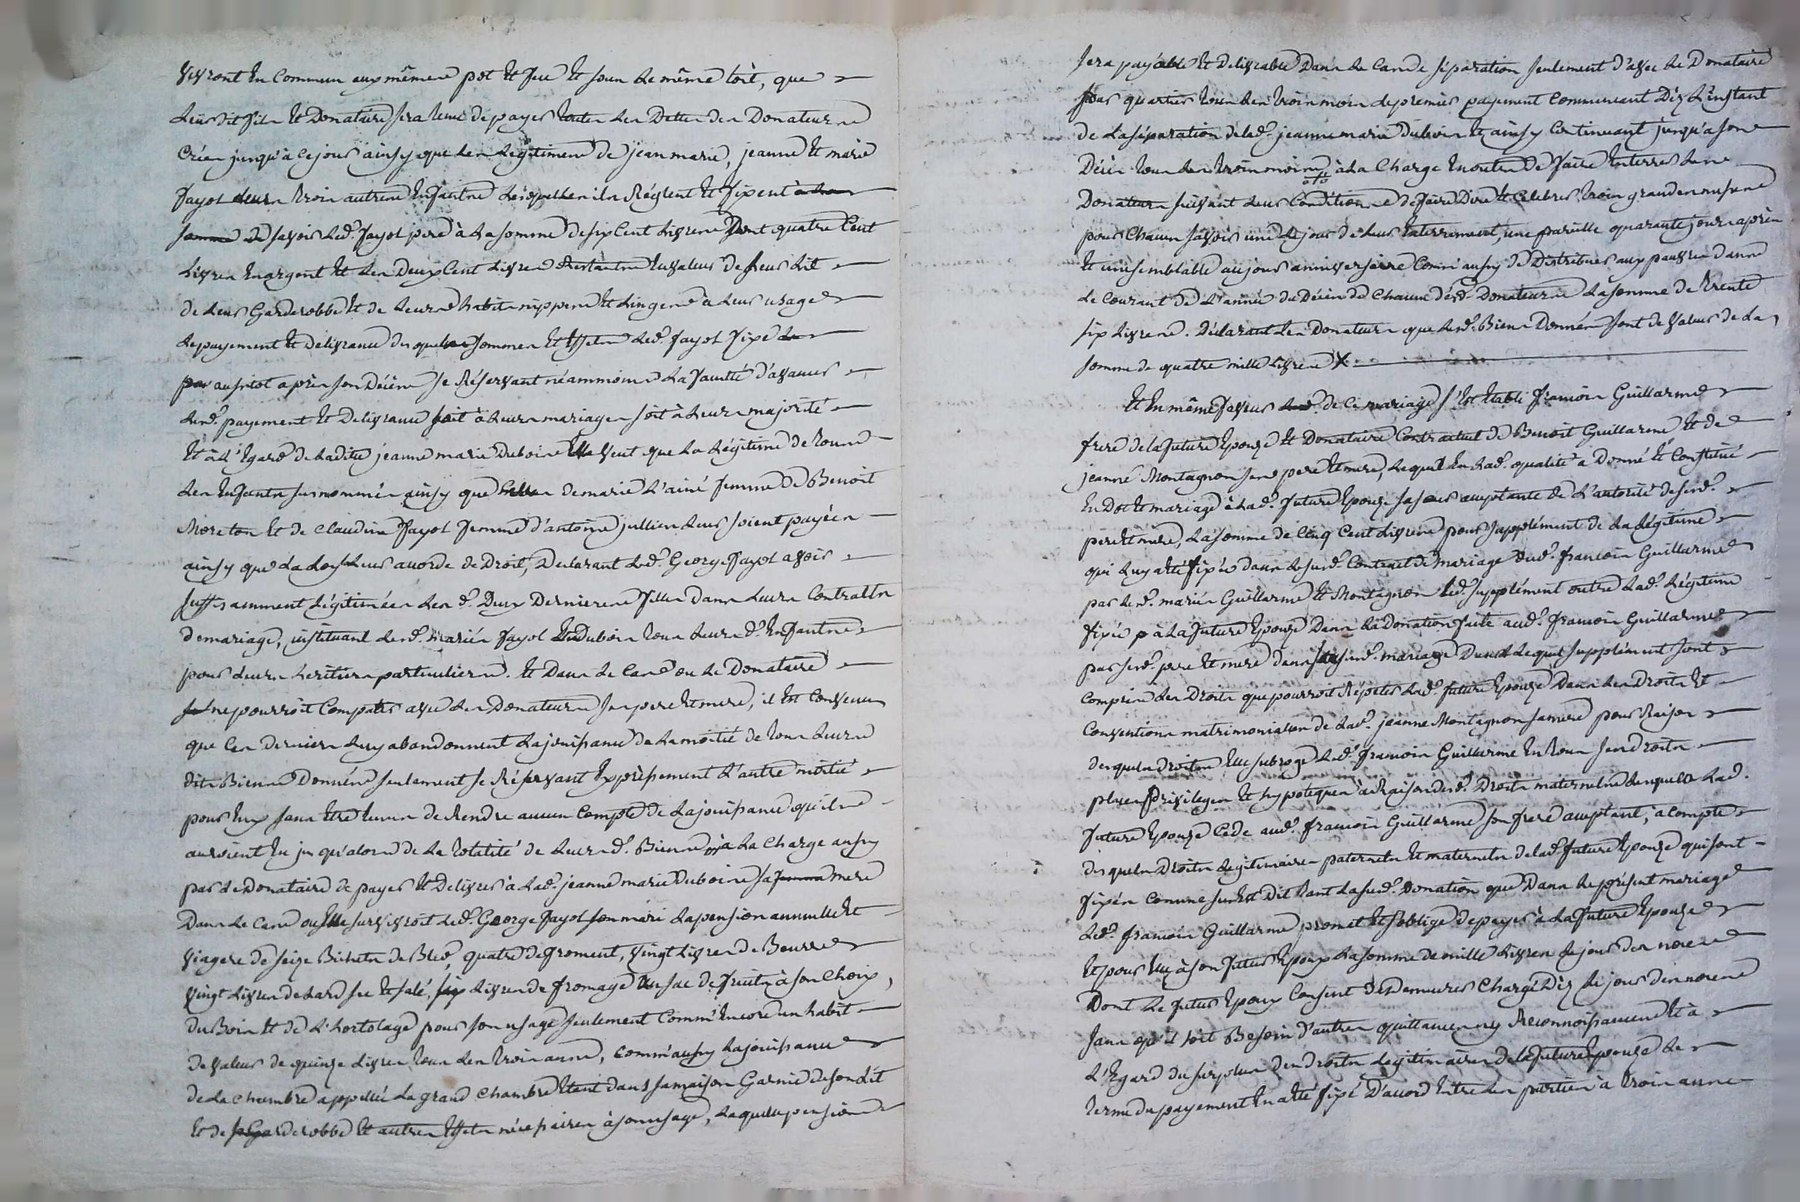 vivront en commun aux même pot et feu et soun le même toit, que
leur dit fils et Donataire sera tenu de payer toutes les Dettes des Donateurs
créés jusqu'à ce jour ainsy que les légitimes de jean marie, jeanne et marie
fayol leurs trois autres enfants lesquelles ils Réglent et fixent à la
somme de savoir led. fayol pere à la somme de six cent livres Dont quatre cent
livres en argent et les deux cent livres restantes en valeur de leur lit
de leur garderobbe et de leurs habits nippes et linges à leur usage
le payement et délivrance desquelles sommes et effets led. fayol fixe
par aussitot après son Décès se Réservant néanmoins la faculté d'avancer
led. payement et Delivrance soit à leurs mariages soit à leurs majorité
et à l'égard de ladite jeanne marie Dubois Elle veut que la légitime de tous
les enfants surnommés ainsy que celles de marie l'ainé femme de Benoit
Moreton et de claudine fayol femme d'antoine jullien leur soient payées
ainsy que la loy leur accorde de Droit, Declarant led. George fayol avoir
suffisamment légitimées les d. Deux Dernieres filles dans leurs contrats
de mariage, instituant led. mariés fayol et Dubois tous leurs d. enfants
pour leurs heritiers particuliers. et Dans le cas ou le Donataire
ne pourroit compatir avec les Donateurs ses pere et mere, il est convenu
que ces derniers luy abandonnent la jouissance de la moitié de tous leurs
dits Biens Donnés seulement se Réservant expressement l'autre moitié
pour eux sans être tenus de Rendre aucun compte de la jouissance qu'ils
auroient eu jusqu'alors de la totalité de leurs d. Biens à la charge aussy
par le Donataire de payer et Delivrer à lad. jeanne marie Dubois sa femme mere
Dans le cas ou Elle survivroit led. George fayol son mari la pension annuelle et
viagere de seize Bichets de Bled, quatre de froment, vingt livres de Beurre
vingt livres de lard sec et salé, six livres de fromage un sac de fruits à son choix,
du Bois et de l'hortolage pour son usage seulement comm'encore un habit
de valeur de quinze livres tous les trois ans, comm'aussy la jouissance
de la chambre appellée la grand chambre étant dans sa maison Garnie de son lit
et de sa garderobbe et autres effets nécessaires à son usage, laquelle pension
sera payable et delivrable Dans le cas de séparation seulement d'avec le Donataire
par quartier tous les trois mois le premier payement commencant Dez l'instant
de la séparation de lad. jeanne marie dubois et ainsy continuant jusqu'a son
Décès tous les trois mois à la charge en outre de faire enterrer les
Donateurs suivant leur condition et de faire Dire et celebrer trois grandes messes
pour chacun savoir une le jour de leur enterrement, une pareille quarante jours après
et une semblable au jour anniversaire comm'aussy de Distribuer aux pauvres dans
le courant de l'année du Décès de chacun desd. Donateurs la somme de trente
six livres. Déclarant les Donateurs que lesd. Biens Donnés sont de valeur de la
somme de quatre mille livres X
Et En même faveur de ce mariage s'est établi francois Guillarme
frere de la future Epouze et Donataire contractuel de Benoit Guillarme et de
jeanne Montagnon ses pere et mere, lequel en lad. qualité a Donné et constitué
en Dot et mariage à lad. future Epouze sa sœur acceptante de l'autorité de sesd.
pere et mere, la somme de cinq cent livres pour supplément de la légitime
qui luy a été fixée dans le susd. contract de mariage dud. francois Guillarme
par les d. mariés Guillarme et Montagnon led. supplément outre lad. légitime
fixée à la future Epouze dans la Donation faite aud. francois Guillarme
par sesd. pere et mere dans son susd. mariage Dans lequel supplément sont
compris les Droits que pourroit Répeter lad. future Epouze Dans les Droits et
conventions matrimoniales de lad. jeanne Montagnon sa mere pour Raison
desquels droits Elle subroge led. francois Guillarme en tous ses droits
places privileges et hypoteques à Raison desd. Droits maternels lesquelle lad.
future Epouze cede aud. francois Guillarme son frere acceptant; a compte
desquels Droits légitimaires paternels et maternels de lad. future Epouze qui sont
fixés comme sus est Dit tant la susd. Donation que Dans le présent mariage
led. francois Guillarme promet et s'oblige de payer à la future Epouze
et pour elle à son futur Epoux la somme de mille livres le jour des noces
Dont le futur Epoux consent d'en demeurer chargé Dez le jour des noces
sans qu'il soit Besoin d'autres quittances ny Reconnoissances et à
l'Egard du surplus des droits légitimaires de la future Epouze le
terme du payement en a été fixé D'accord Entre les parties à trois anne